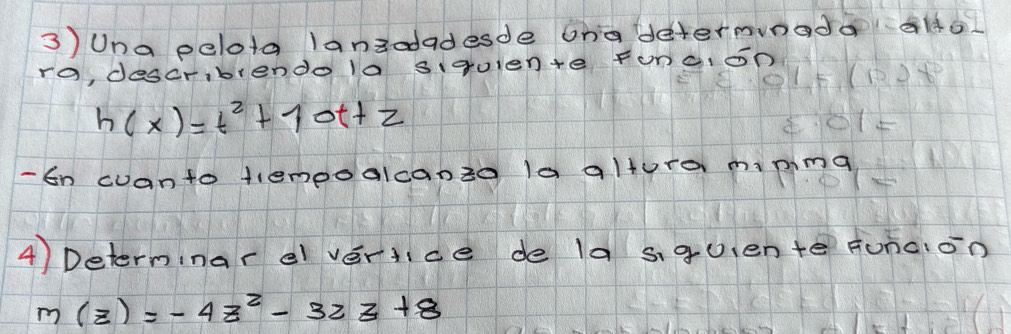 3) Una pelota lanzadadesde una determinada alto-
ra, describiendo la siguiente función
h(x)=t²+10t+2
-En cuanto tiempoalcanza la altura minima
4) Determinar el vértice de la siguiente función
m(z)=-4z²-32z+8